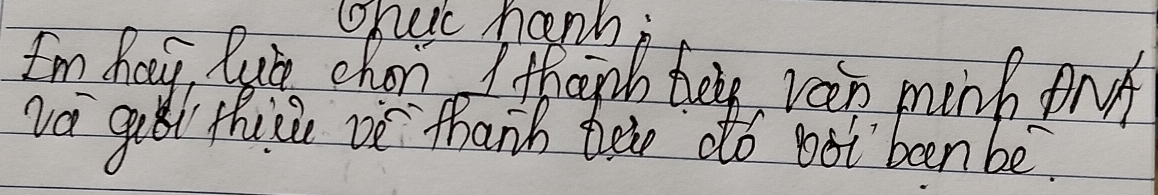 Thực hành:
Em hãy lựa chọn 1 thành tựu văn minh ĐNÁ
và giới thiệu về thành tựu đó với bạn bè.